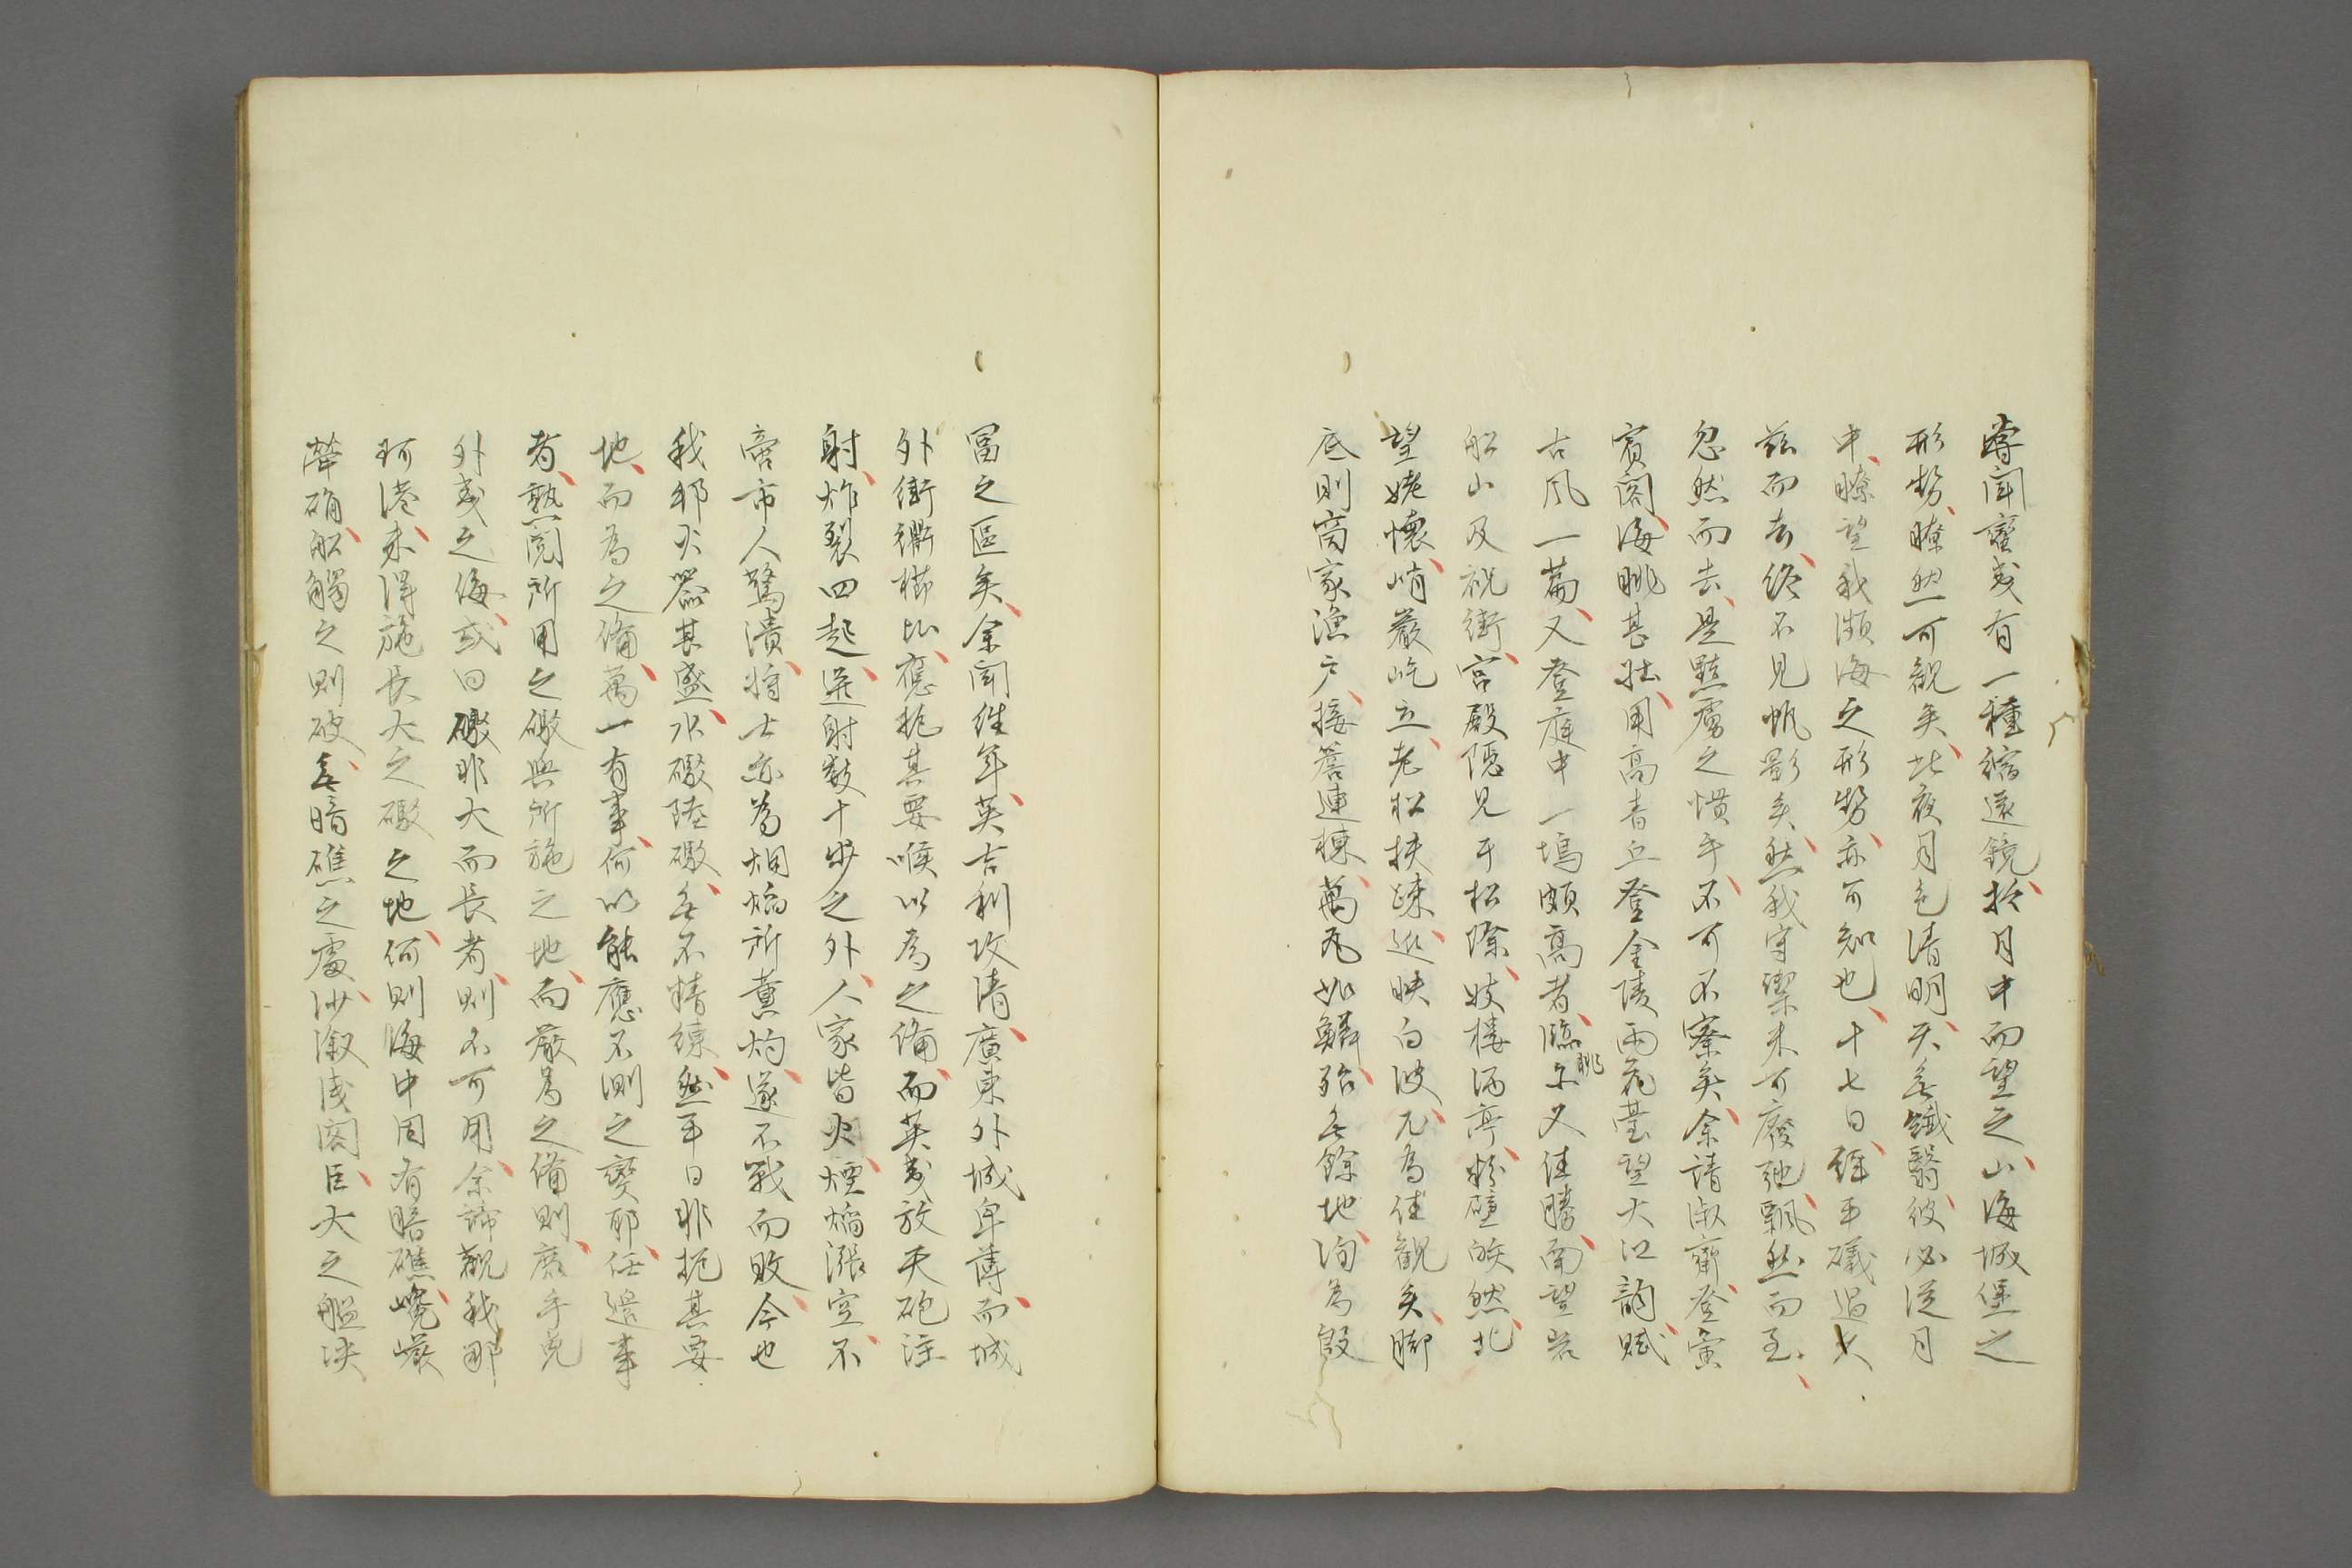 嘗聞蠻夷有一種縮遠鏡於月中而望之山海城堡之
形勢瞭然可観矣此夜月色清明天無纖翳彼必從月
中瞭望我瀕海之形勢亦可知也十七日錐平礒過大
茲而去終不見帆影矣然我守禦未可廢弛飄然而至
忽然而去是黠虜之慣手不可不察矣余請淑齋登寅
賓閣海眺甚壯用高青丘登金陵雨花臺望大江韵賦
古風一篇又登庭中一塢頗高者臨眺尓又佳勝南望岩
船山及祝街宮殿隠見于松際妓樓酒亭粉壁皎然北
望姥懐峭巌屹立老松扶疎返映白波尤為佳観矣脚
底則商家漁戸接簷連棟萬瓦如鱗殆無餘地洵為殷
冨之區矣余聞往年英吉利攻清廣東外城卑薄而城
外街衢櫛比應扼其要喉以為之備而英夷放天砲注
射炸裂四起逆射数十歩之外人家皆火煙焔漲空不
啻市人驚潰将士亦為烟焔所薫灼遂不戰而敗今也
我邦火器甚盛水礮陸礮無不精練然平日非扼其要
地而為之備萬一有事何以能應不測之變耶任邉事
者熟閲所用之礮與所施之地而嚴為之備則庶乎免
外夷之侮或曰礮非大而長者則不可用余諦観我那
珂港未得施長大之礮之地何則海中固有暗礁巉巌
犖确船觸之則破無暗礁之處沙溆浅閣巨大之艦決